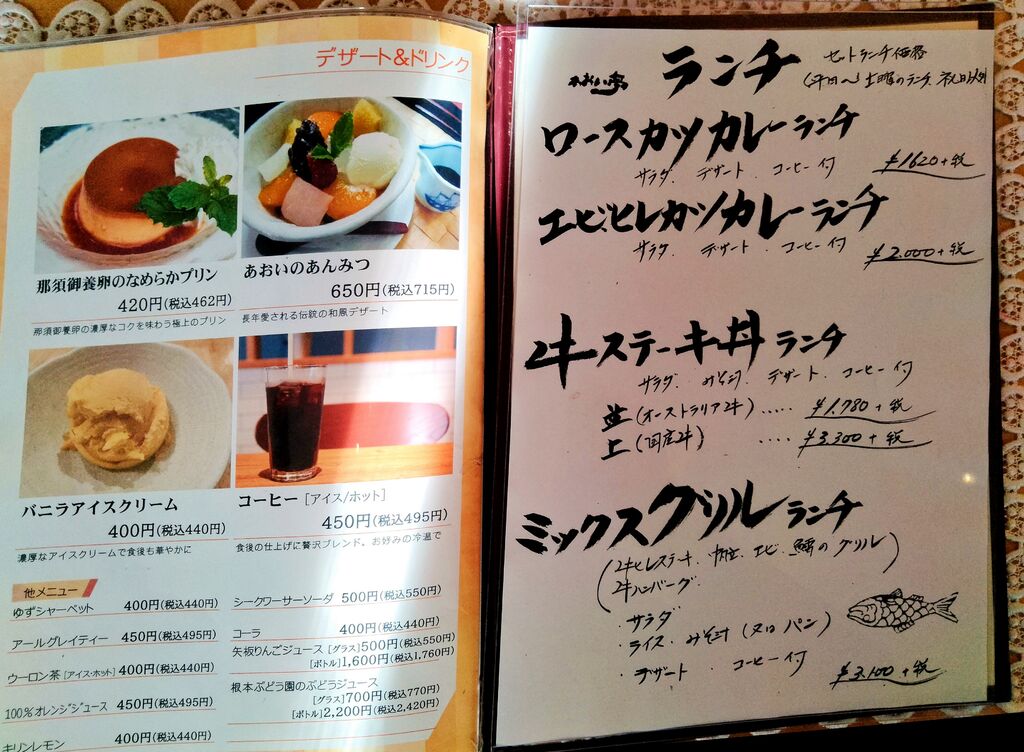 デザート&ドリンク
那須御養卵のなめらかプリン
420円(税込462円)
那須御養卵の濃厚なコクを味わう極上のプリン
あおいのあんみつ
650円(税込715円)
長年愛される伝統の和風デザート
バニラアイスクリーム
400円(税込440円)
濃厚なアイスクリームで食後も華やかに
コーヒー [アイス/ホット]
450円(税込495円)
食後の仕上げに贅沢ブレンド、お好みの冷温で
他メニュー
ゆずシャーベット 400円(税込440円)
アールグレイティー 450円(税込495円)
ウーロン茶 [アイス・ホット] 400円(税込440円)
100%オレンジジュース 450円(税込495円)
キリンレモン 400円(税込440円)
シークワーサーソーダ 500円(税込550円)
コーラ 400円(税込440円)
矢板りんごジュース [グラス] 500円(税込550円)
[ボトル] 1,600円(税込1,760円)
根本ぶどう園のぶどうジュース
[グラス] 700円(税込770円)
[ボトル] 2,200円(税込2,420円)
あおい亭 ランチ
セットランチ価格
土曜のランチ、祝日以外
ロースカツカレーランチ
サラダ、デザート コーヒー付 ¥1620+税
エビ、ヒレカツカレーランチ
サラダ、デザート、コーヒー付 ¥2.000+税
牛ステーキ丼ランチ
サラダ、みそ汁、デザート、コーヒー付
並(オーストラリア牛)..... ¥1.780+税
上(国産牛) .... ¥3,300+税
ミックスグリルランチ
(牛ヒレステーキ、エビ、のグリル)
牛ハンバーグ
・サラダ
・ライス・みそ汁(又はパン)
・デザート・コーヒー付
¥3.100+税